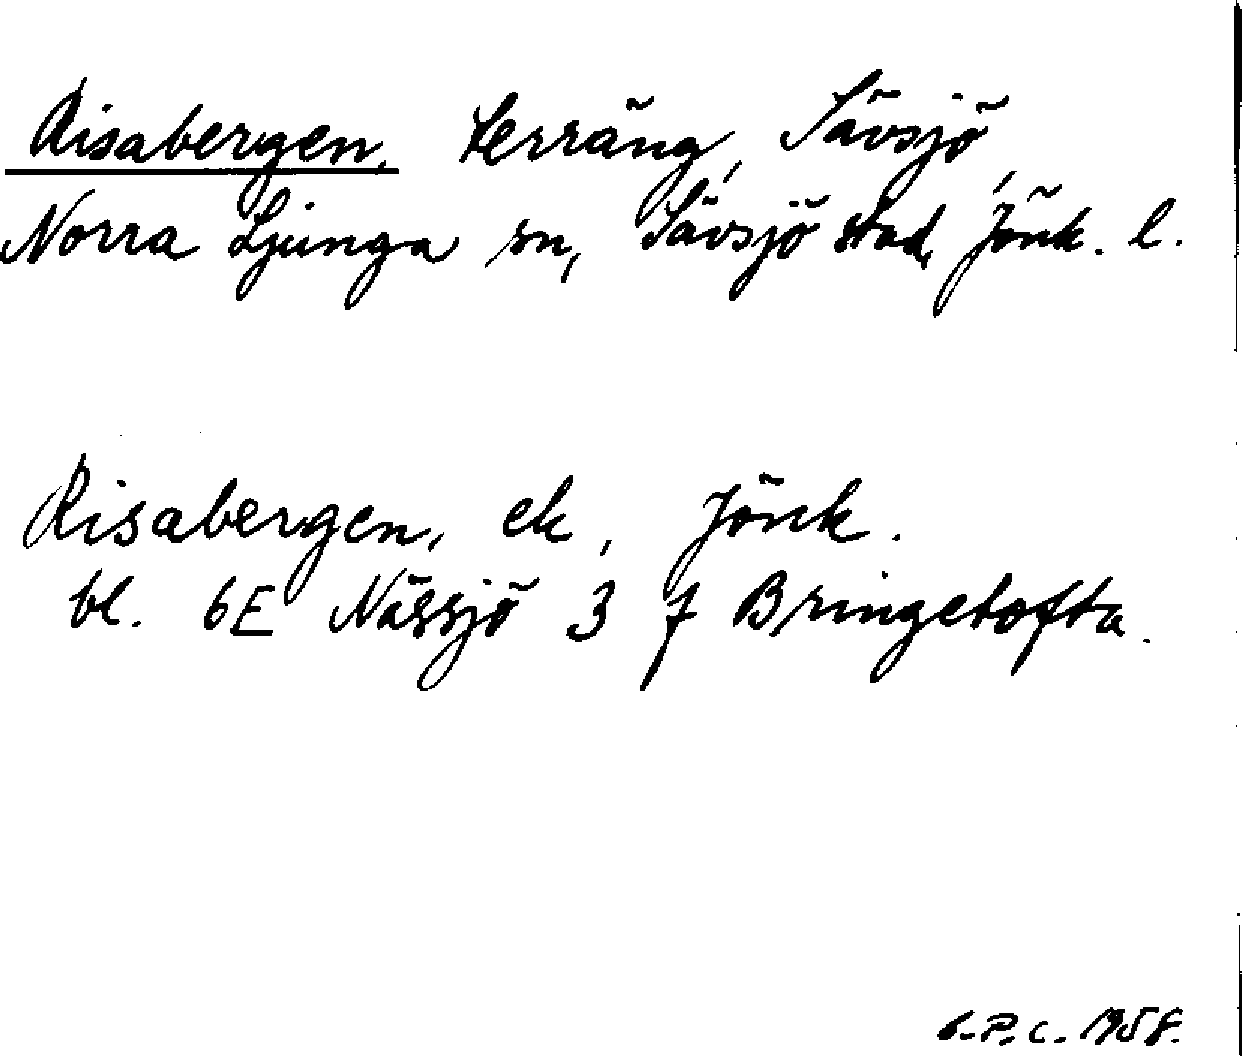 Risabergen, terräng, Sävsjö,
Norra Ljunga sn, Sävsjö stad, Jönk. l.
Risabergen, ek, Jönk.
bl. 6E Nässjö 3 f Bringetofta.
1958.